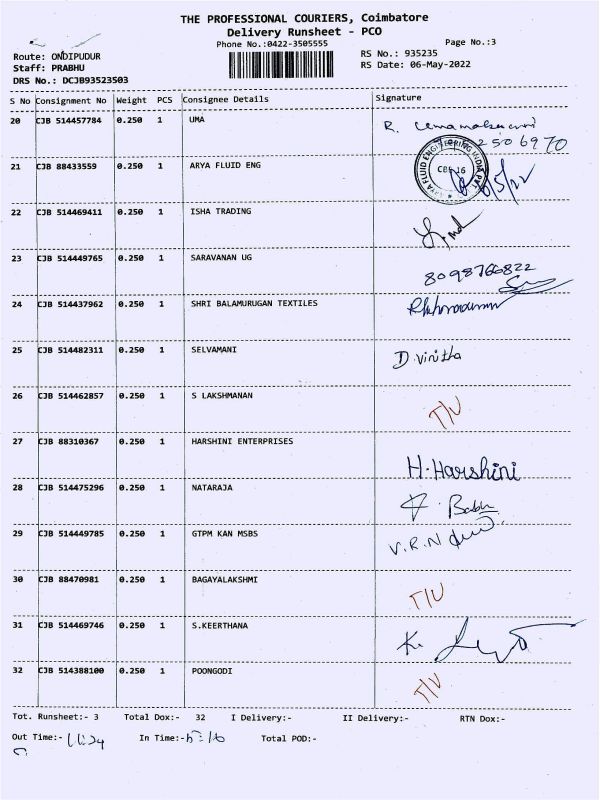 THE PROFESSIONAL COURIERS, Coimbatore
Delivery Runsheet - PCO
Phone No.:0422-3505555 Page No.:3
Route: ONDIPUDUR RS No.: 935235
Staff: PRABHU RS Date: 06-May-2022
DRS No.: DCJB93523503
S No Consignment No Weight PCS Consignee Details Signature
20 CJB 514457784 0.250 1 UMA R.
2506970
21 CJB 88433559 0.250 1 ARYA FLUID ENG
22 CJB 514469411 0.250 1 ISHA TRADING
23 CJB 514449765 0.250 1 SARAVANAN UG 8098766822
24 CJB 514437962 0.250 1 SHRI BALAMURUGAN TEXTILES
25 CJB 514482311 0.250 1 SELVAMANI D. Vinitha
26 CJB 514462857 0.250 1 S LAKSHMANAN T/U
27 CJB 88310367 0.250 1 HARSHINI ENTERPRISES H. Harshini
28 CJB 514475296 0.250 1 NATARAJA Babu
29 CJB 514449785 0.250 1 GTPM KAN MSBS V.R.N
30 CJB 88470981 0.250 1 BAGAYALAKSHMI T/U
31 CJB 514469746 0.250 1 S.KEERTHANA K.
32 CJB 514388100 0.250 1 POONGODI T/U
Tot. Runsheet:- 3 Total Dox:- 32 I Delivery:- II Delivery:- RTN Dox:-
Out Time:- In Time:- Total POD:-